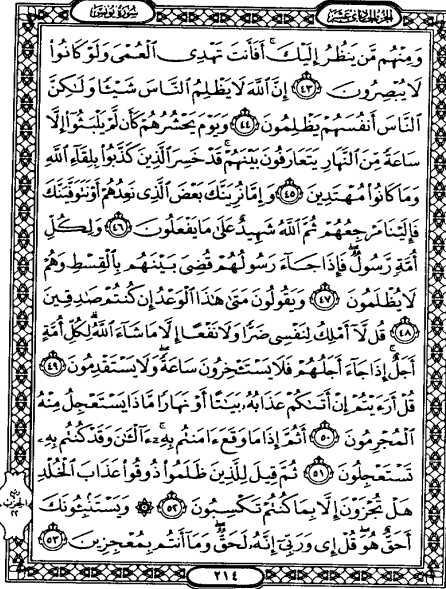 سورة يونس
الجزء الحادي عشر
وَمِنْهُم مَّن يَنظُرُ إِلَيْكَ ۚ أَفَأَنتَ تَهْدِى ٱلْعُمْىَ وَلَوْ كَانُوا۟
لَا يُبْصِرُونَ ﴿٤٣﴾ إِنَّ ٱللَّهَ لَا يَظْلِمُ ٱلنَّاسَ شَيْـًٔا وَلَٰكِنَّ
ٱلنَّاسَ أَنفُسَهُمْ يَظْلِمُونَ ﴿٤٤﴾ وَيَوْمَ يَحْشُرُهُمْ كَأَن لَّمْ يَلْبَثُوٓا۟ إِلَّا
سَاعَةً مِّنَ ٱلنَّهَارِ يَتَعَارَفُونَ بَيْنَهُمْ ۚ قَدْ خَسِرَ ٱلَّذِينَ كَذَّبُوا۟ بِلِقَآءِ ٱللَّهِ
وَمَا كَانُوا۟ مُهْتَدِينَ ﴿٤٥﴾ وَإِمَّا نُرِيَنَّكَ بَعْضَ ٱلَّذِى نَعِدُهُمْ أَوْ نَتَوَفَّيَنَّكَ
فَإِلَيْنَا مَرْجِعُهُمْ ثُمَّ ٱللَّهُ شَهِيدٌ عَلَىٰ مَا يَفْعَلُونَ ﴿٤٦﴾ وَلِكُلِّ
أُمَّةٍ رَّسُولٌ ۖ فَإِذَا جَآءَ رَسُولُهُمْ قُضِىَ بَيْنَهُم بِٱلْقِسْطِ وَهُمْ
لَا يُظْلَمُونَ ﴿٤٧﴾ وَيَقُولُونَ مَتَىٰ هَٰذَا ٱلْوَعْدُ إِن كُنتُمْ صَٰدِقِينَ
﴿٤٨﴾ قُل لَّآ أَمْلِكُ لِنَفْسِى ضَرًّا وَلَا نَفْعًا إِلَّا مَا شَآءَ ٱللَّهُ ۗ لِكُلِّ أُمَّةٍ
أَجَلٌ ۚ إِذَا جَآءَ أَجَلُهُمْ فَلَا يَسْتَـْٔخِرُونَ سَاعَةً ۖ وَلَا يَسْتَقْدِمُونَ ﴿٤٩﴾
قُلْ أَرَءَيْتُمْ إِنْ أَتَىٰكُمْ عَذَابُهُۥ بَيَٰتًا أَوْ نَهَارًا مَّاذَا يَسْتَعْجِلُ مِنْهُ
ٱلْمُجْرِمُونَ ﴿٥٠﴾ أَثُمَّ إِذَا مَا وَقَعَ ءَامَنتُم بِهِۦٓ ۚ ءَآلْـَٰٔنَ وَقَدْ كُنتُم بِهِۦ
تَسْتَعْجِلُونَ ﴿٥١﴾ ثُمَّ قِيلَ لِلَّذِينَ ظَلَمُوا۟ ذُوقُوا۟ عَذَابَ ٱلْخُلْدِ
هَلْ تُجْزَوْنَ إِلَّا بِمَا كُنتُمْ تَكْسِبُونَ ﴿٥٢﴾ ۞ وَيَسْتَنۢبِـُٔونَكَ
أَحَقٌّ هُوَ ۖ قُلْ إِى وَرَبِّىٓ إِنَّهُۥ لَحَقٌّ ۖ وَمَآ أَنتُم بِمُعْجِزِينَ ﴿٥٣﴾
الحزب
٢٢
٢١٤